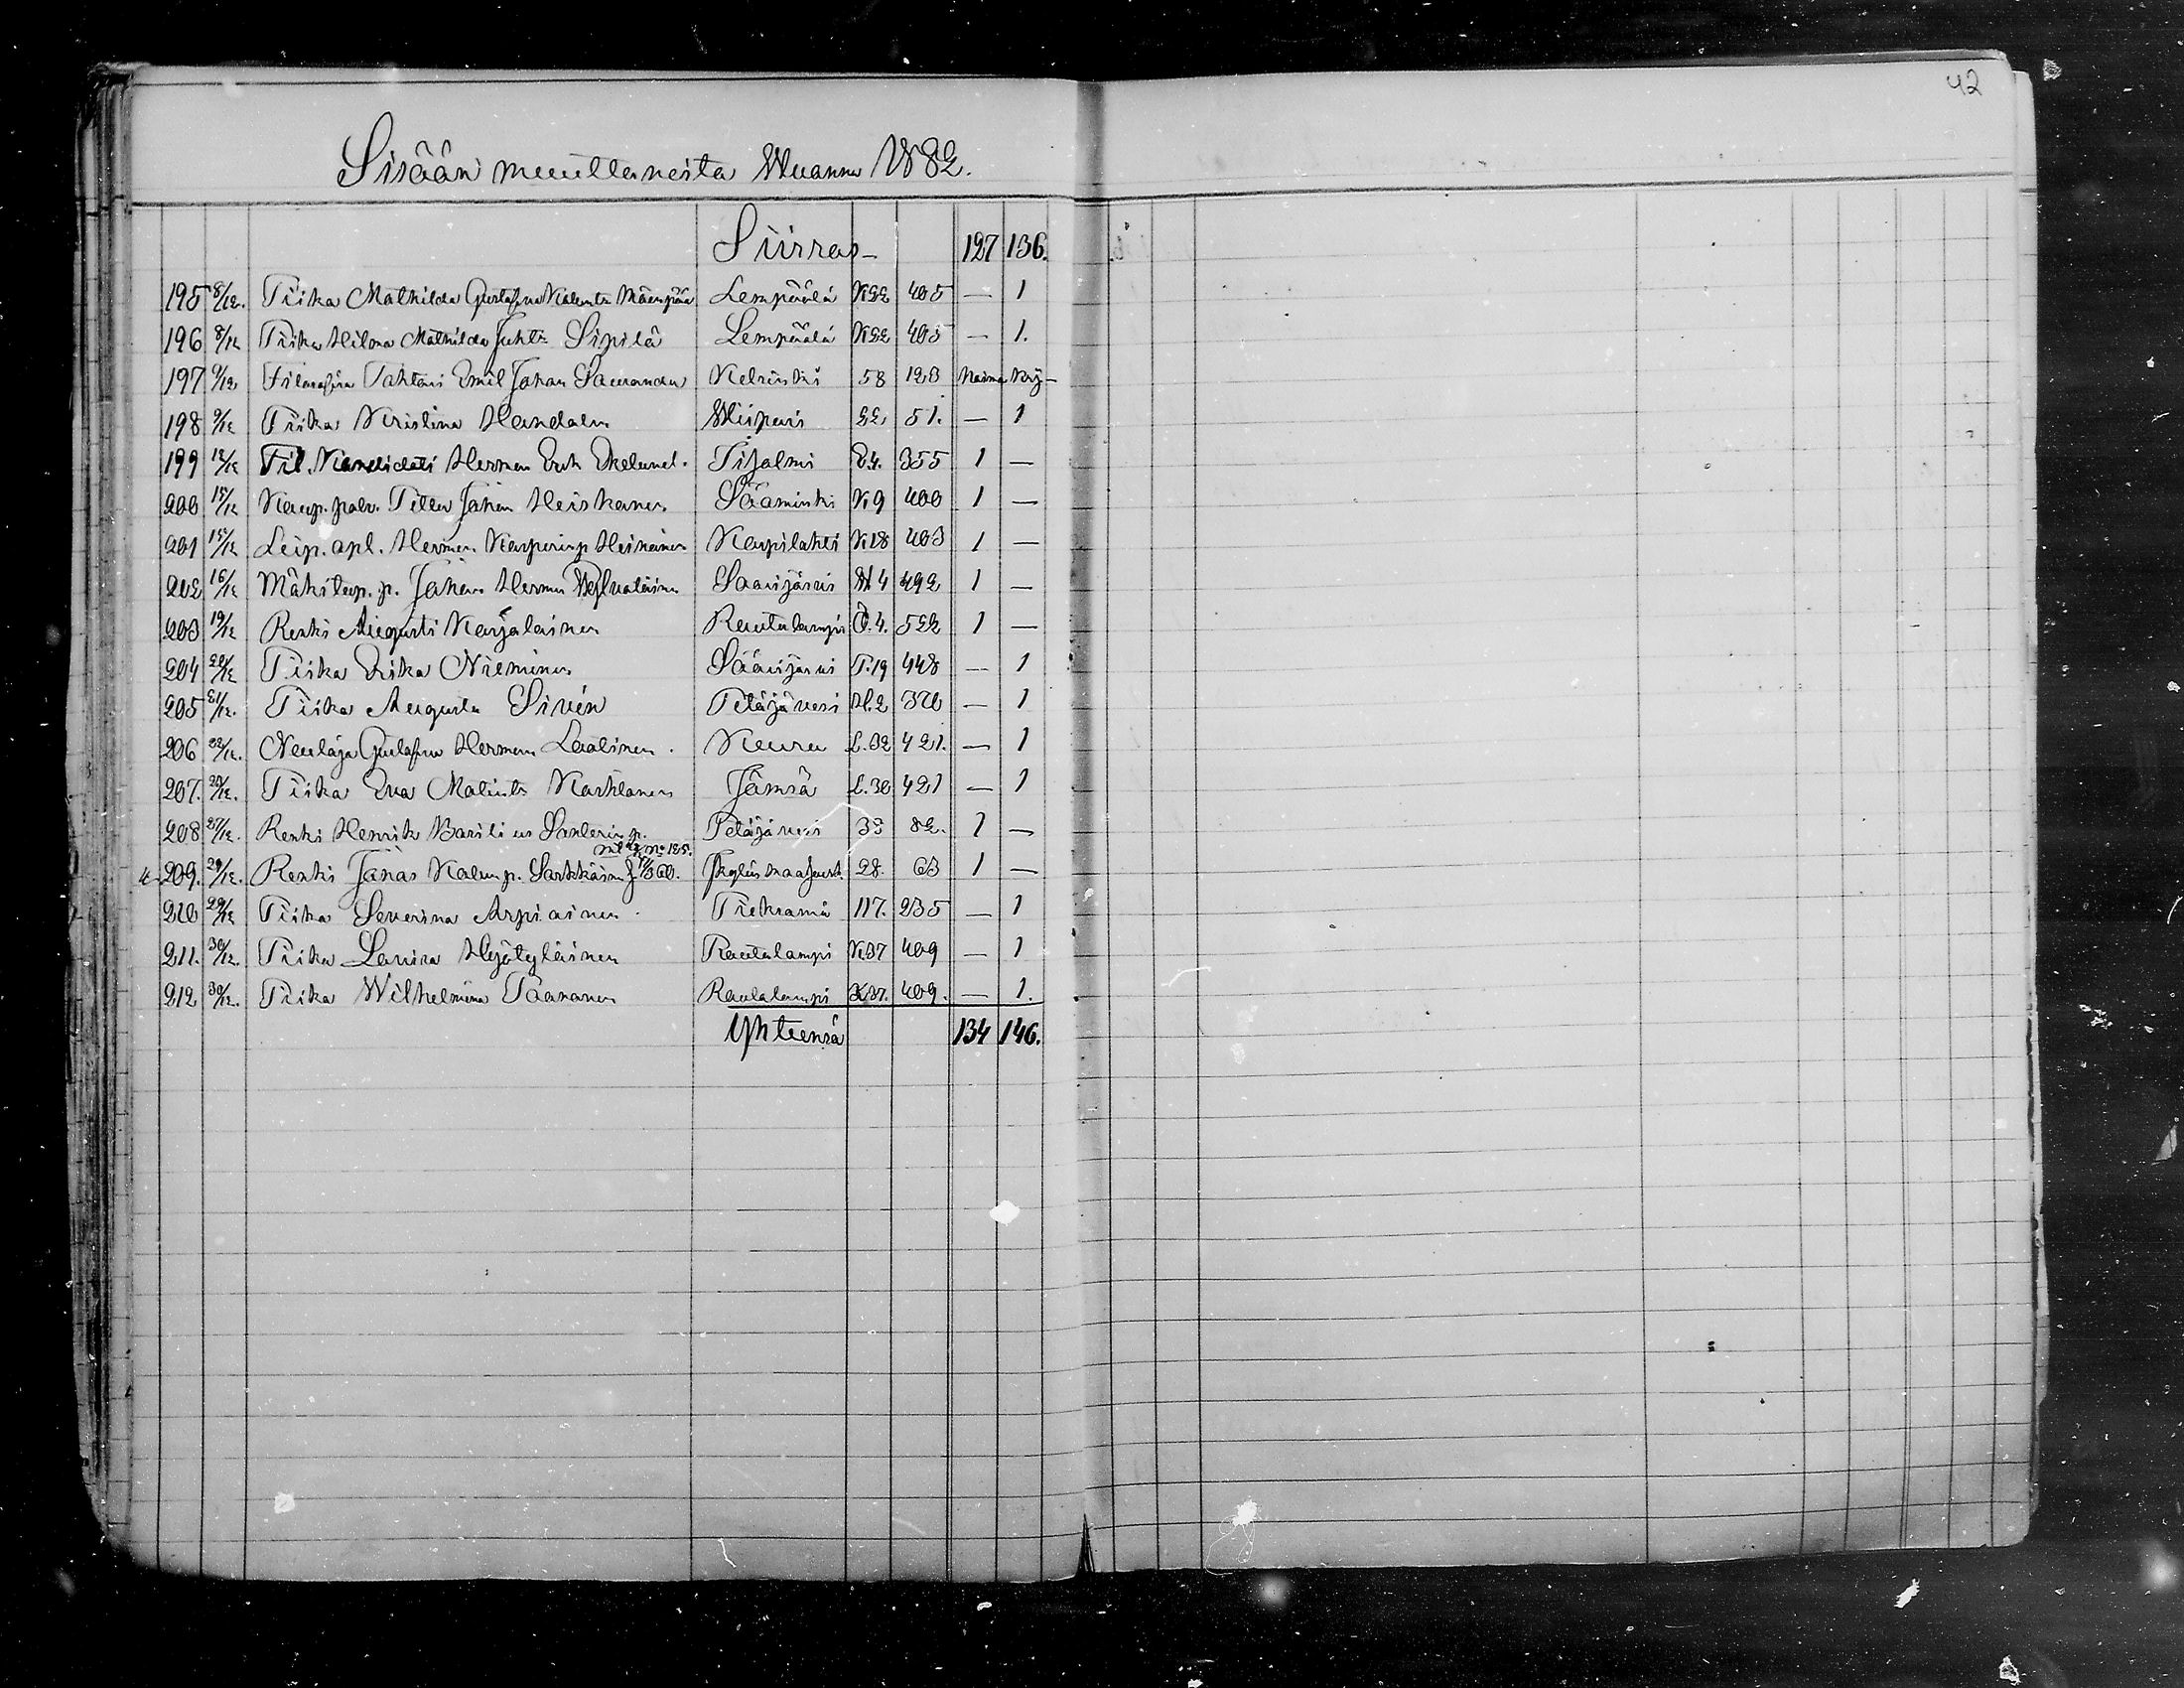 42
Sisään muuttaneita Wuonna 1882.
Siirros 127 136.
195 8/12. Piika Mathilda Gustafva Kalentr Mäenpää Lempäälä K22 405 — 1
196 8/12 Piika Hilma Mathilda Juhtr Sipilä Lempäälä K22 405 — 1.
197 9/12 Tohtori Emil Johan Helsinki 58 123
198 9/12 Piika Kristina Handolin Wiipuri 22 51. — 1
199 12/12 Fil. Kandidati Herman Erik Ekelund. Iisalmi E4. 355 1 —
200 15/12 Kaup. palv. Johan Heiskanen Sääminki K9 400 1 —
201 15/12 Leip. apl. Herman Kasperinp. Heinänen Karpilahti K18 403 1 —
202 16/12 Johan Herman Saarijärvi 4 492 1 —
203 19/12 Renki Augusti Karjalainen Rautalampi 4. 522 1 —
204 20/12 Piika Erika Nieminen Säärijärvi T.19 448 — 1
205 21/12. Piika Augusta Sirén Petäjävesi H.2 370 — 1
206 22/12. Neulaja Gustafva Herman Laatinen. Keuru L.32 421. — 1
207. 23/12. Piika Eva Matintr Karhlanen Jämsä L.30 421 — 1
208 27/12. Renki Henrik Basilius Santerinp. Petäjävesi 33 82. 1 —
209. 29/12. Renki Jonas Kalenp. Sarkkäinen Jkylän maaseurk. 28. 63 1 —
210 29/12 Piika Severina Arpiainen. Pieksämä 117. 235 — 1
211. 30/12. Piika Lovisa Hyötyläinen Rautalampi K37 409 — 1
212 30/12. Piika Wilhelmina Paananen Rautalampi K37. 409. — 1.
Yhteensä 134 146.